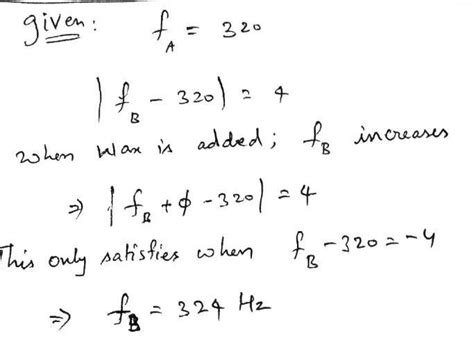 given: f_A = 320
|f_B - 320| = 4
when wax is added; f_B increases
⇒ |f_B + ϕ - 320| = 4
This only satisfies when f_B - 320 = -4
⇒ f_B = 324 Hz